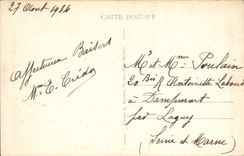 27 Aout 1914
CARTE POSTALE
Affectueux Baisers
Mme C. Crédoz
Mr et Mme Poulain
20 Bis R Antoinette
à Dampmart
par Lagny
(Seine et Marne)